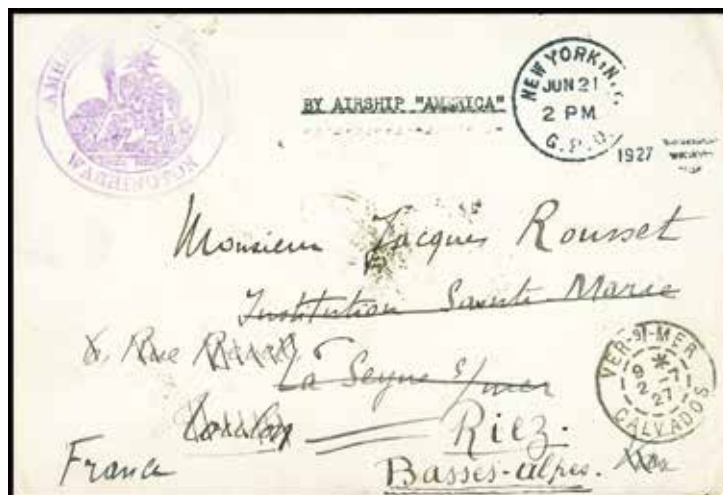 WASHINGTON
BY AIRSHIP "AMERICA"
NEW YORK, N.Y.
JUN 21
2 PM
G.P.O.
1927
Monsieur Jacques Rousset
Institution Sainte Marie
6, Rue
La Seyne s/mer
Toulon
Riez.
France
Basses-Alpes.
VER-S-MER
9 *
2-7
27
CALVADOS